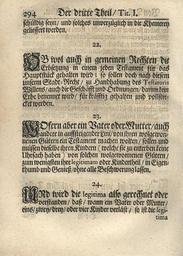 294 Der dritte Theil / Tit. I.
fällig seyn / und solches unverzüglich in die Chamerey
geliefert werden.
22.
OB wol auch in gemeinen Rechten die
Erbsatzung in einem jeden Testament für das
Hauptstück gehalten wird / so sollen doch nach diesem
unserm Stadt-Recht / zu Handhabung des Testaments
Willens / auch die Geschäfft und Ordnungen / darinn kein
Erb benennet wird / für kräfftig gehalten und vollstrecket
werden.
23.
WOfern aber ein Vater oder Mutter / auch
ander in auffsteigender Lini / von ihren wolgewonnenen
Gütern ein Testament machen wolten / sollen und
müssen dieselbe ihren Kindern / (welche sie zu enterben keine
Ursach haben) von solchen wolgewonnenen Gütern /
zum wenigsten ihre legitimam oder Kindertheil / in Eigenthumb
und Genieß / ohne alle Beschwerung lassen.
24.
UNd wird die legitima also gerechnet oder
verstanden / daß / wann ein Vater oder Mutter /
eins / zwey / drey / oder vier Kinder verläst / so ist die legitima